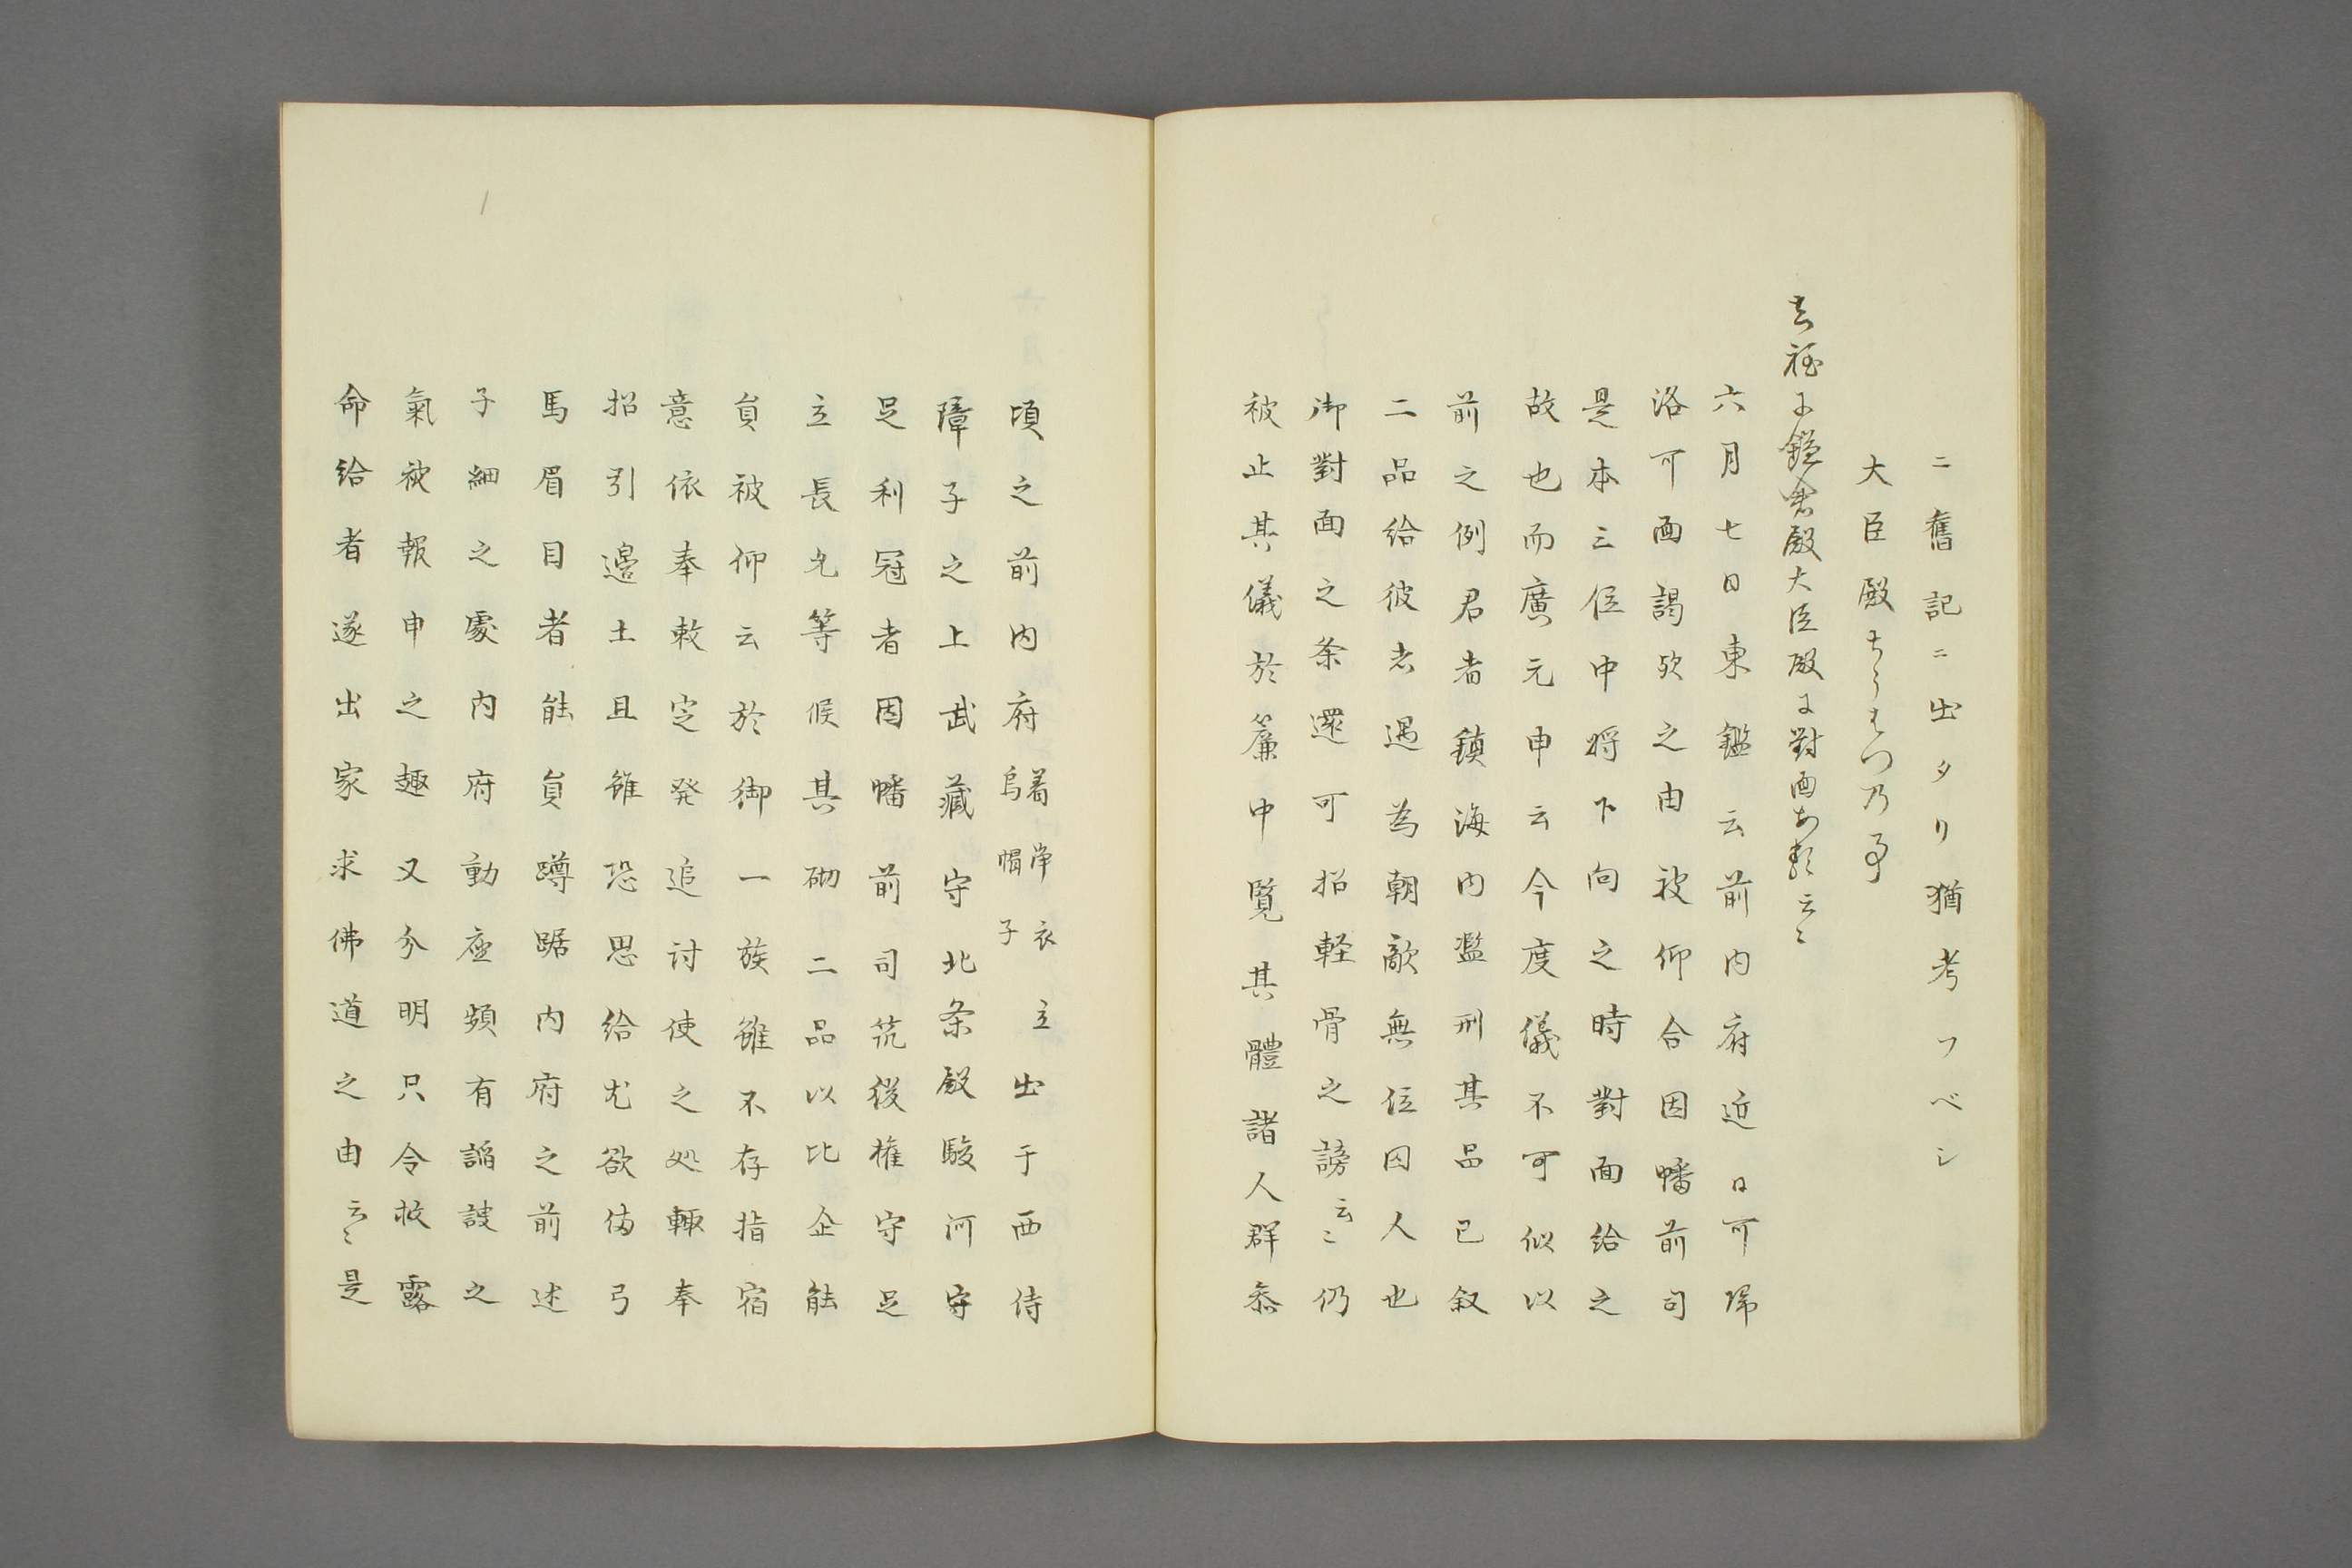 ニ舊記ニ出タリ猶考フベシ
大臣殿ちうはつ乃事
去程に鎌倉殿大臣殿に對面あり云〻
六月七日東鑑云前内府近日可帰
洛可面謁欤之由被仰合因幡前司
是本三位中将下向之時對面給之
故也而廣元申云今度儀不可似以
前之例君者鎮海内濫刑其品已叙
二品給彼者過為朝敵無位囚人也
御對面之条還可招軽骨之謗云〻仍
被止其儀於簾中覧其體諸人群叅
頃之前内府着浄衣烏帽子立出于西侍
障子之上武藏守北条殿駿河守
足利冠者因幡前司筑後権守足
立馬允等候其砌二品以比企能
員被仰云於御一族雖不存指宿
意依奉敕定発追討使之処輙奉
招引邊土且雖恐思給尤欲備弓
馬眉目者能員蹲踞内府之前述
子細之處内府動座頻有諂諛之
氣被報申之趣又分明只令救露
命給者遂出家求佛道之由云〻是